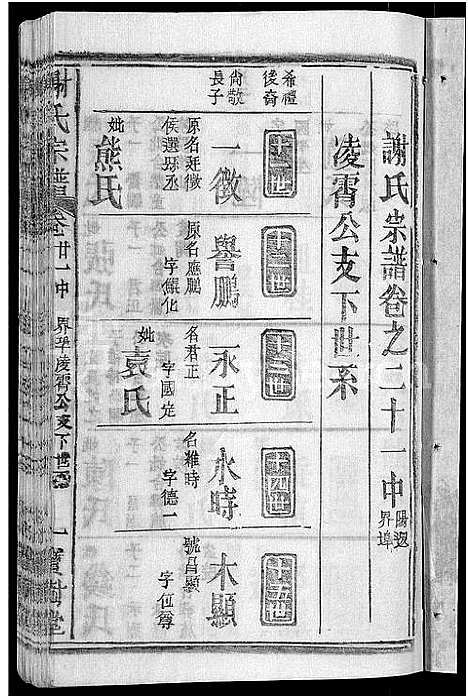 謝氏宗譜卷之二十一中
界埠
凌霄公支下世系
十一世
十二世
十三世
十四世
十五世
希禮後裔
尚敬長子
一徵
原名廷徵
候選縣丞
妣熊氏
譽鵬
原名應鵬
字鯤化
永正
名君正
字國定
妣袁氏
永時
名雜時
字德一
木顯
號昌顯
字位尊
謝氏宗譜
卷廿一中
界埠凌霄公支下世系
一
寶樹堂